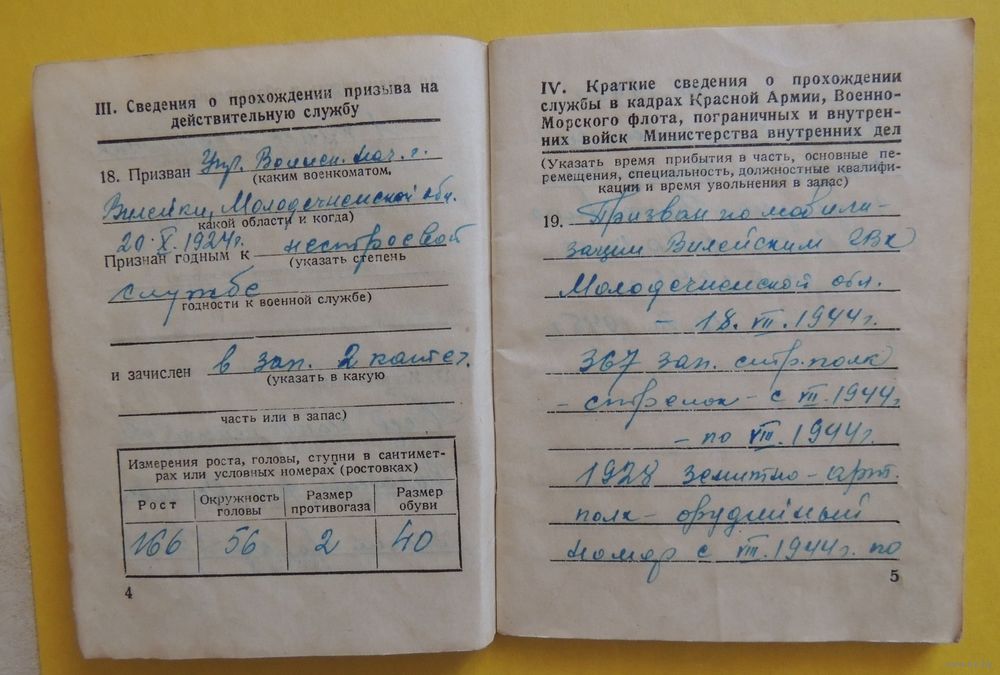 III. Сведения о прохождении призыва на
действительную службу
18. Призван Упр. Воинск. нач. г.
(каким военкоматом,
Вилейки, Молодечненской обл.
какой области и когда)
20.X.1924г.
Признан годным к нестроевой
(указать степень
службе
годности к военной службе)
и зачислен в зап. 2 катег.
(указать в какую
часть или в запас)
Измерения роста, головы, ступни в сантимет-
рах или условных номерах (ростовках)
Рост Окружность головы Размер противогаза Размер обуви
166 56 2 40
4
IV. Краткие сведения о прохождении
службы в кадрах Красной Армии, Военно-
Морского флота, пограничных и внутрен-
них войск Министерства внутренних дел
(Указать время прибытия в часть, основные пе-
ремещения, специальность, должностные квалифи-
кации и время увольнения в запас)
19. Призван по мобили-
зации Вилейским ГВК
Молодечненской обл.
– 18.VII.1944г.
367 зап. стр. полк
– стрелок – с VII.1944г.
– по VIII.1944г.
1928 зенитно-арт.
полк – орудийный
номер с VIII.1944г. по
5